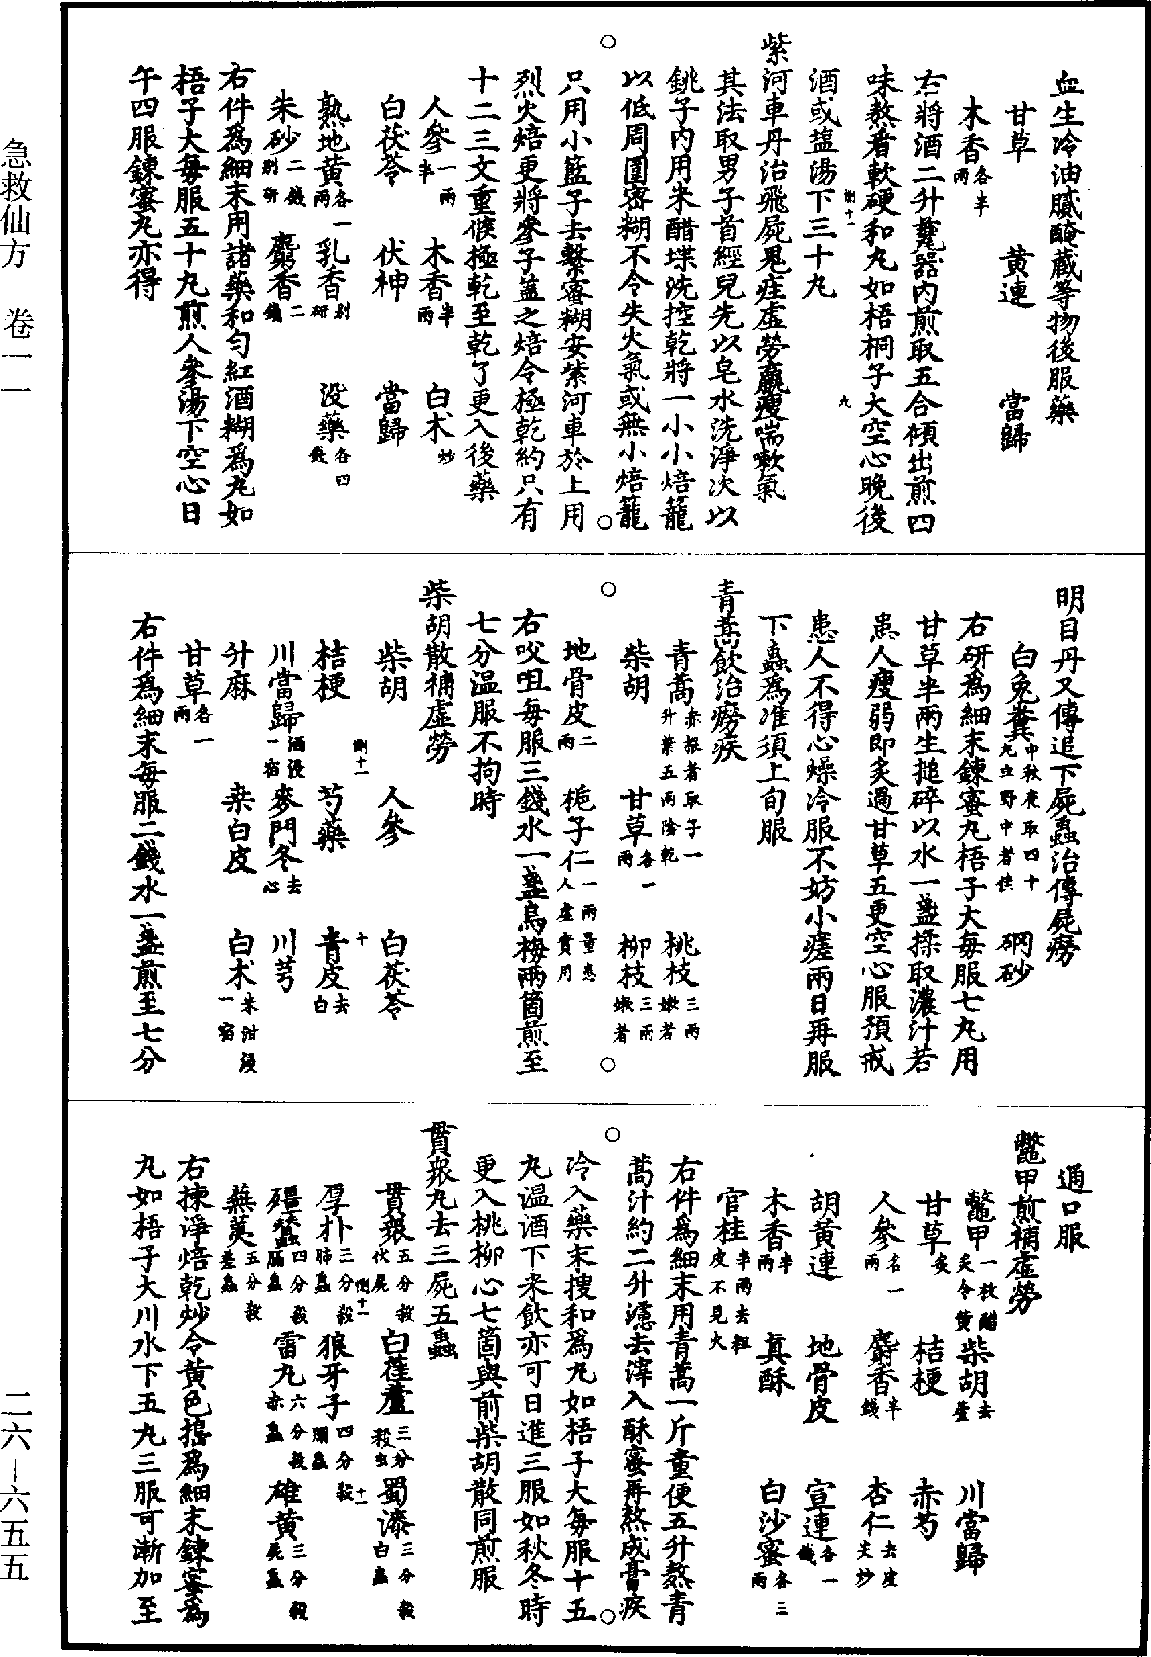 血生冷油膩醃藏等物後服藥
甘草　黃連　當歸
木香各半兩
右將酒二升甆器內煎取五合傾出煎四
味熬看軟硬和丸如梧桐子大空心晚後
酒或盐湯下三十丸
紫河車丹治飛屍鬼疰虛勞羸瘦喘嗽氣
其法取男子首經兒先以皂水洗淨次以
銚子內用米醋堞洗控乾將一小小焙籠
以低周圍密糊不令失火氣或無小焙籠
只用小籃子去繫密糊安紫河車於上用
烈火焙更將參子蓋之焙令極乾約只有
十二三文重候極乾至乾了更入後藥
人參一兩半　木香半兩　白朮炒
白茯苓　伏神　當歸
熟地黃各一兩　乳香別研　没藥各四錢
朱砂二錢別研　麝香二錢
右件爲細末用諸藥和勻紅酒糊爲丸如
梧子大每服五十丸煎人參湯下空心日
午四服鍊蜜丸亦得
明目丹又傳追下屍蟲治傳屍癆
白兔糞中秋夜取四十九豆野中者佳　硇砂
右研爲細末鍊蜜丸梧子大每服七丸用
甘草半兩生搥碎以水一盞揉取濃汁若
患人瘦弱即炙過甘草五更空心服預戒
患人不得心燥冷服不妨小瘥兩日再服
下蟲爲准須上旬服
青蒿飲治癆疾
青蒿赤根者取子一升葉五兩陰乾　桃枝三兩嫩者
柴胡　甘草各一兩　柳枝三兩嫩者
地骨皮二兩　梔子仁一兩量患人虛實用
右㕮咀每服三錢水一盞烏梅兩箇煎至
七分温服不拘時
柴胡散補虛勞
柴胡　人參　白茯苓
桔梗　芍藥　青皮去白
川當歸酒浸一宿　麥門冬去心　川芎
升麻　桒白皮　白朮米泔浸一宿
甘草各一兩
右件爲細末每服二錢水一盞煎至七分
通口服
鼈甲煎補虛勞
鼈甲一枚醋炙令黄　柴胡去蘆　川當歸
甘草炙　桔梗　赤芍
人參各一兩　麝香半錢　杏仁去皮尖炒
胡黃連　地骨皮　宣連各一錢
木香半兩　真酥　白沙蜜各三兩
官桂半兩去粗皮不見火
右件爲細末用青蒿一斤童便五升熬青
蒿汁約二升濾去滓入酥蜜再熬成膏疾
冷入藥末搜和爲丸如梧子大每服十五
丸温酒下米飲亦可日進三服如秋冬時
更入桃柳心七箇與前柴胡散同煎服
貫衆丸去三屍五蟲
貫衆五分殺伏屍　白雚蘆三分殺虫　蜀漆三分殺白蟲
厚朴三分殺肺蟲　狼牙子四分殺胃蟲
殭蠶四分殺膈蟲　雷丸六分殺赤蟲　雄黃三分殺屍蟲
蕪荑五分殺
右揀淨焙乾炒令黄色搗爲細末鍊蜜爲
丸如梧子大川水下五丸三服可漸加至
急救仙方　卷一一
二六—六五五